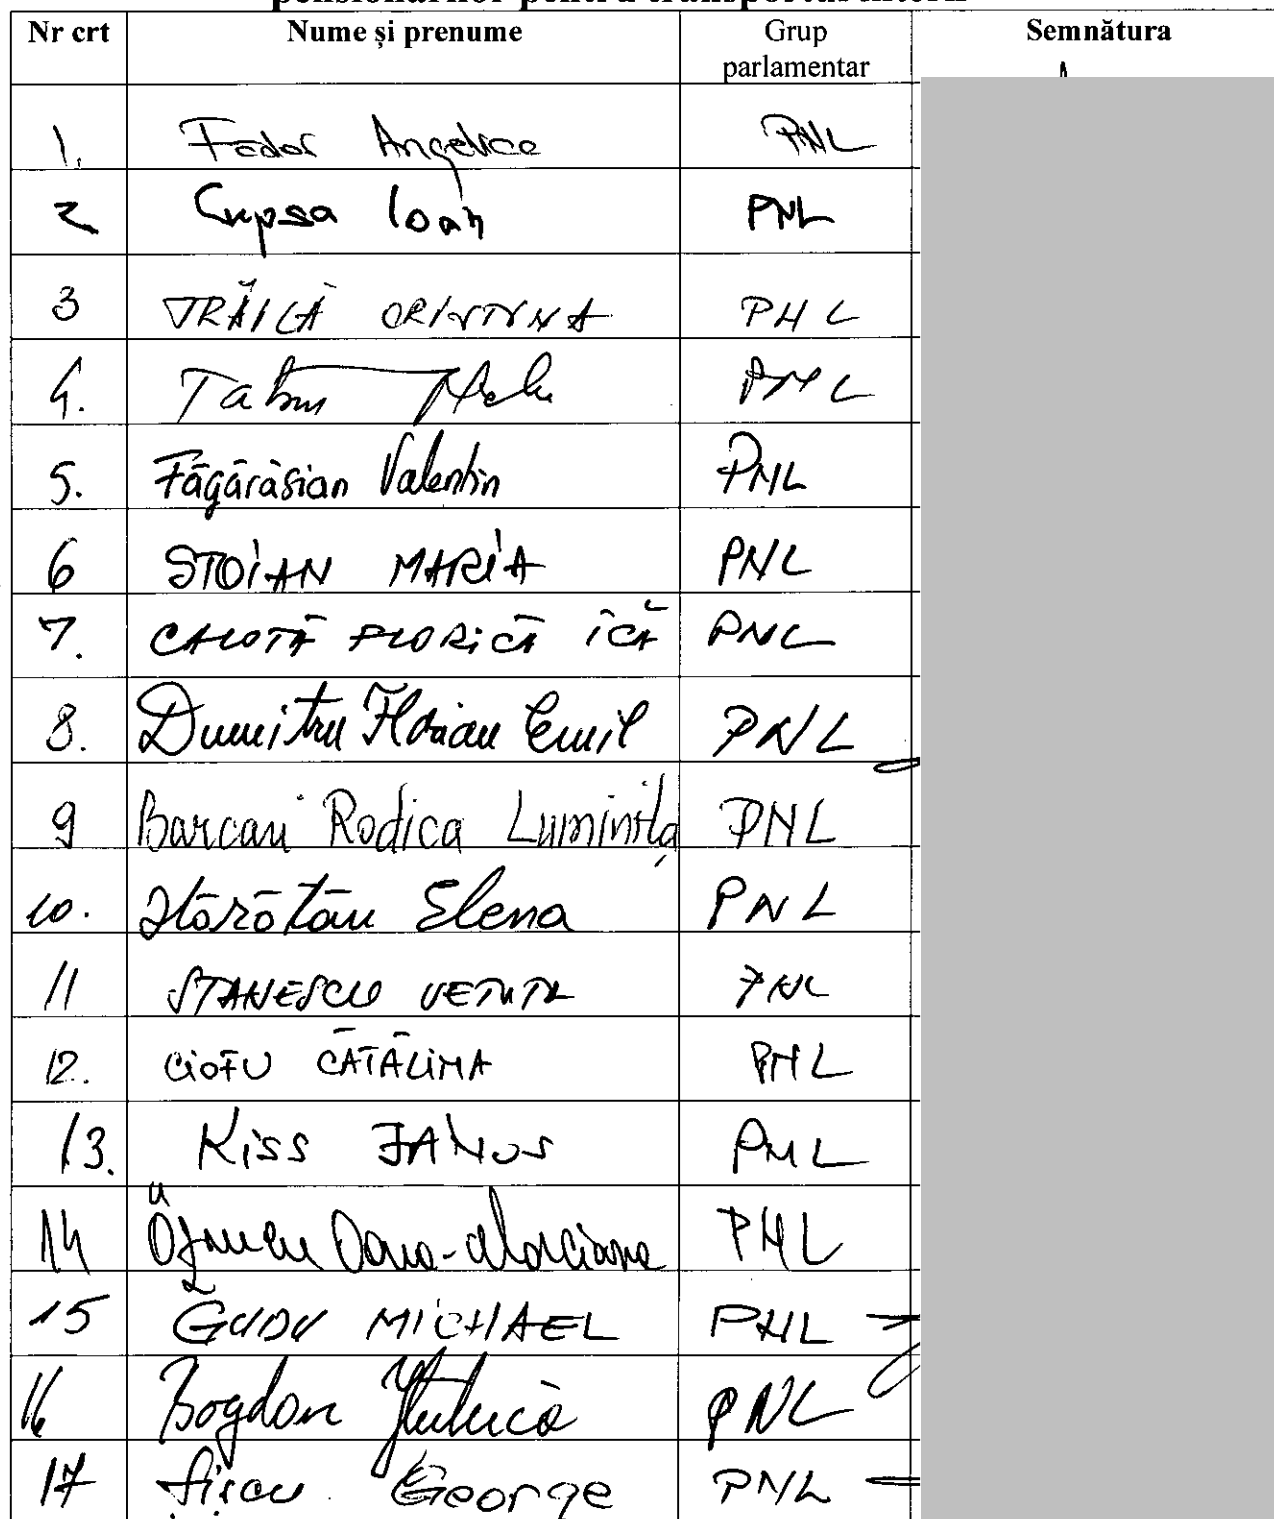 pensionarilor pentru transportul intern
Nr crt Nume și prenume Grup parlamentar Semnătura
1. Fodor Angelica PNL
2 Cupsa Ioan PNL
3 TRĂILĂ CRISTINA PNL
4. PNL
5. Făgărăsian Valentin PNL
6 STOIAN MARIA PNL
7. CALOTĂ FLORICĂ ICĂ PNL
8. Dumitru Florian Emil PNL
9 Barcari Rodica Luminița PNL
10. Hărătău Elena PNL
11 STANESCU VETUTA PNL
12. CIOFU CĂTĂLINA PNL
13. Kiss JANOS PNL
14 PNL
15 GUDU MICHAEL PNL
16 Bogdan PNL
17 Șișcu George PNL